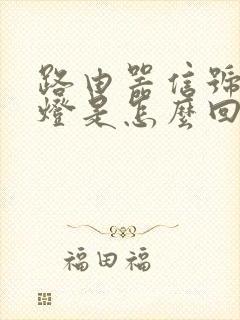 路由器信號
燈是怎麼回
福田福